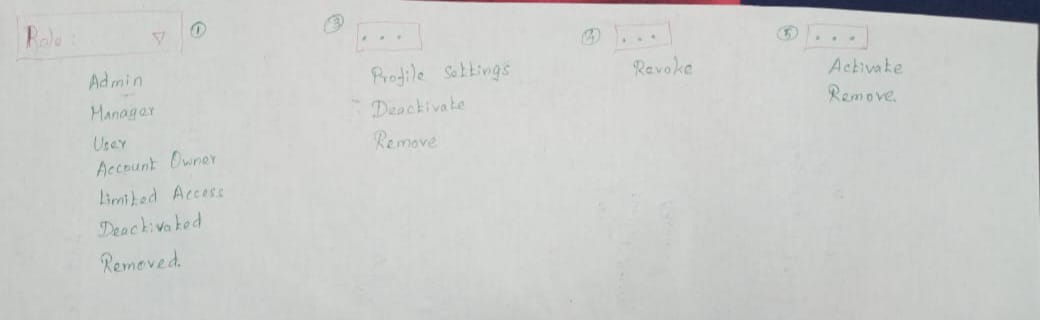 Role: ▽ ①
Admin
Manager
User
Account Owner
Limited Access
Deactivated
Removed.
③
...
Profile Settings
Deactivate
Remove
④ ...
Revoke
⑤ ...
Activate
Remove.